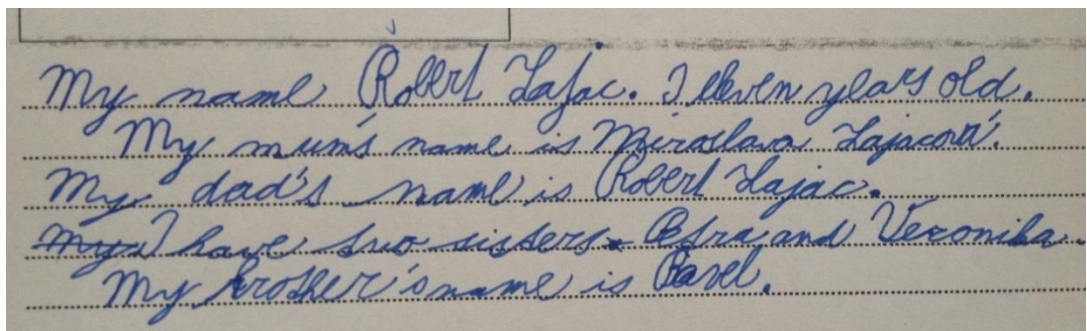 My name Robert Lajac. I eleven years old.
My mum's name is Miroslava Lajacová.
My dad's name is Robert Lajac.
I have two sisters. Petra and Veronika.
My brother's name is Pavel.